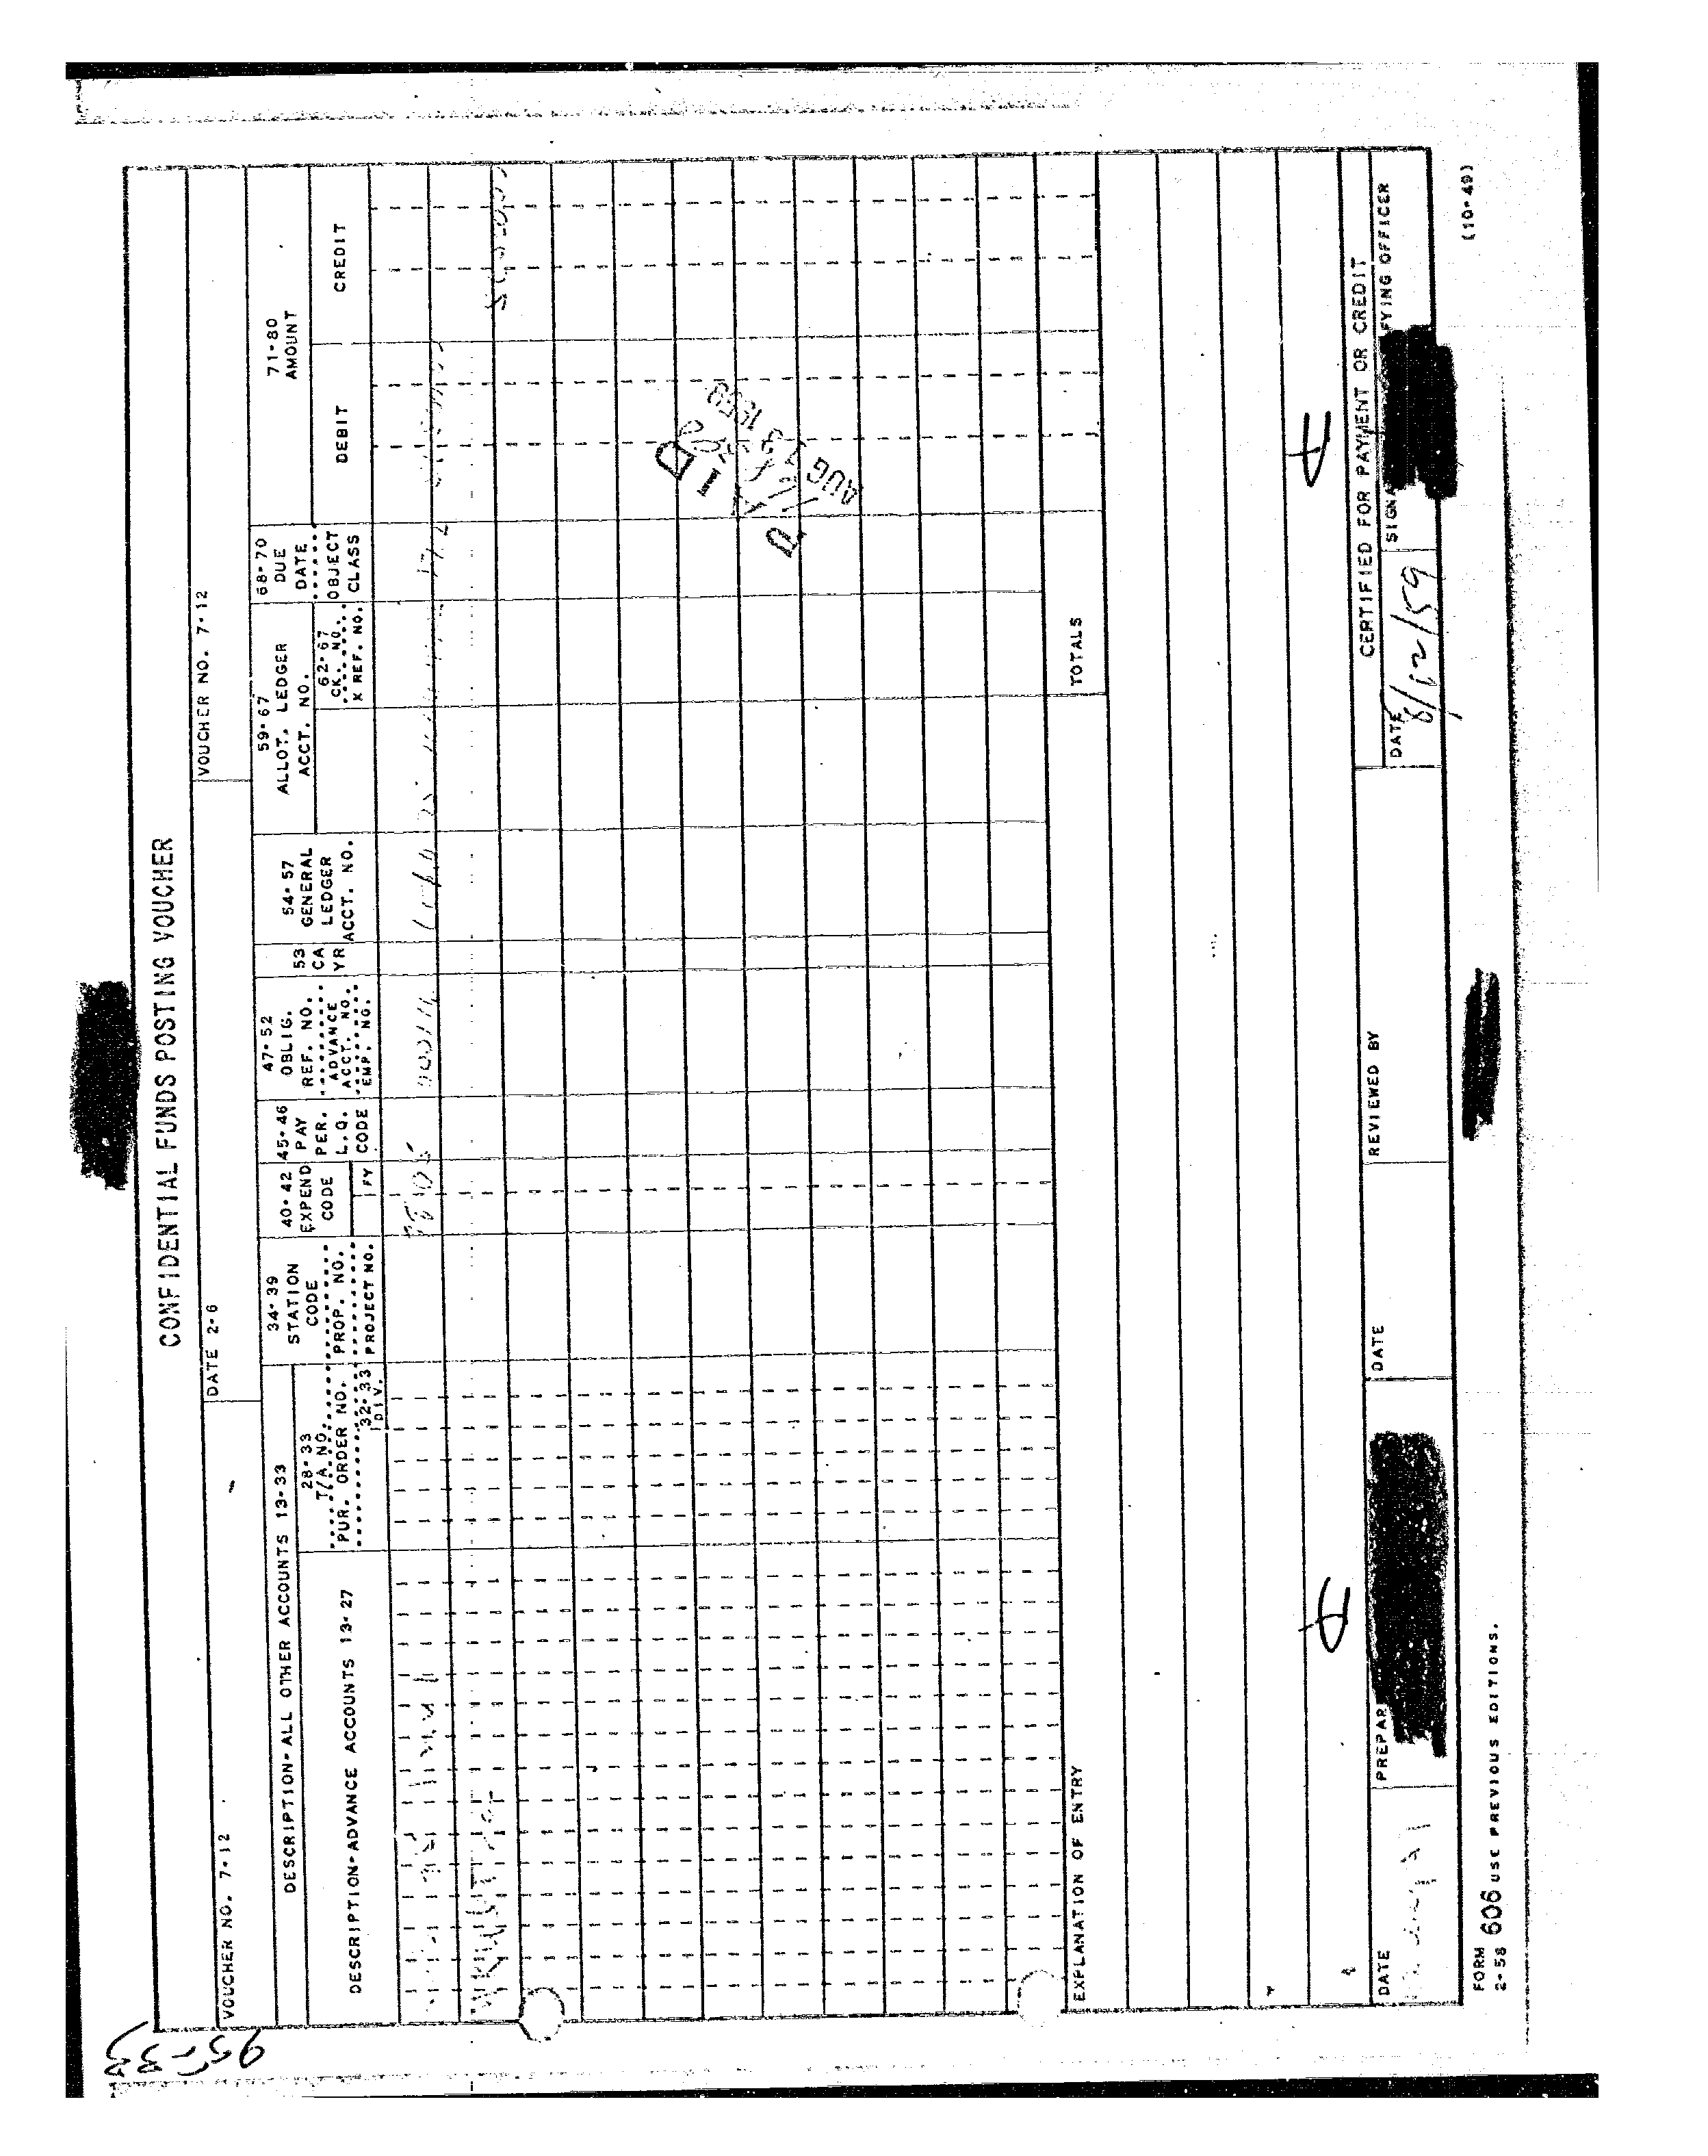 95-33
CONFIDENTIAL FUNDS POSTING VOUCHER
VOUCHER NO. 7-12
DATE 2-6
VOUCHER NO. 7-12
DESCRIPTION-ALL OTHER ACCOUNTS 13-33
DESCRIPTION-ADVANCE ACCOUNTS 13-27
28-33
T/A NO.
PUR. ORDER NO.
32-33
DIV.
34-39
STATION
CODE
PROP. NO.
PROJECT NO.
40-42
EXPEND
CODE
FY
45-46
PAY
PER.
L.Q.
CODE
47-52
OBLIG.
REF. NO.
ADVANCE
ACCT. NO.
EMP. NO.
53
CA
YR
54-57
GENERAL
LEDGER
ACCT. NO.
59-67
ALLOT. LEDGER
ACCT. NO.
62-67
CK. NO.
X REF. NO.
68-70
DUE
DATE
OBJECT
CLASS
71-80
AMOUNT
DEBIT
CREDIT
PAID
AUG 13 1959
EXPLANATION OF ENTRY
TOTALS
CERTIFIED FOR PAYMENT OR CREDIT
DATE
PREPAR
DATE
REVIEWED BY
DATE
8/12/59
SIGNA
FYING OFFICER
FORM
2-58 606 USE PREVIOUS EDITIONS.
(10-49)